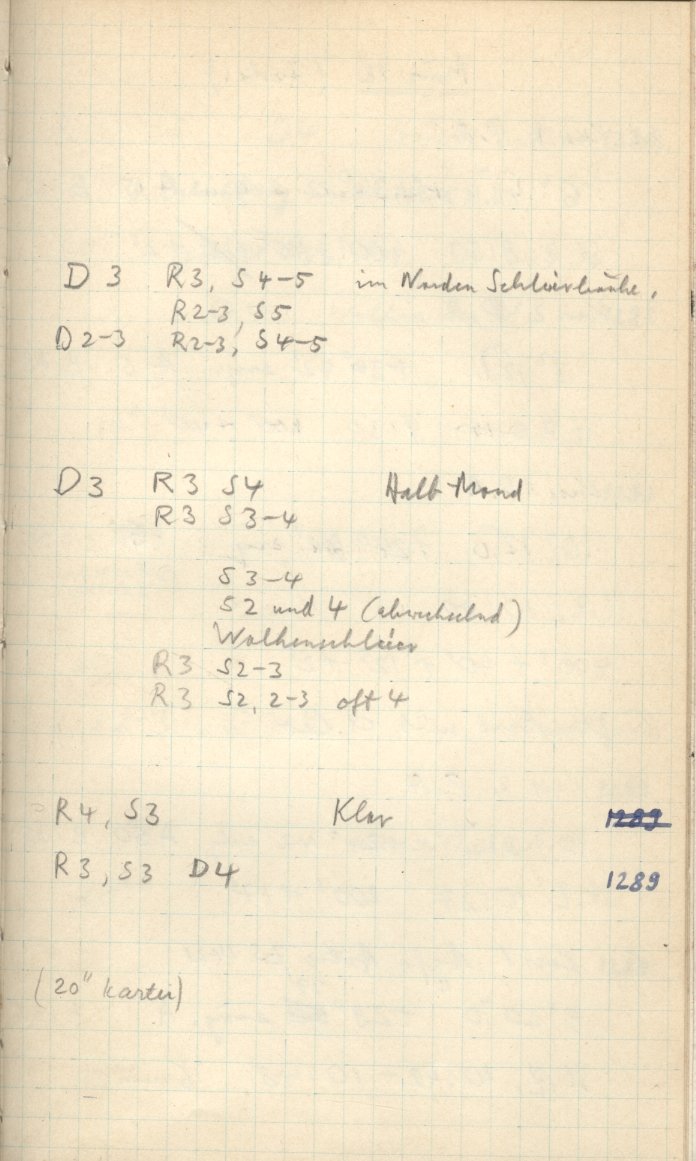 D 3 R3, S 4-5 im Norden
R2-3, S5
D2-3 R2-3, S4-5
D3 R3 S4 Halb Mond
R3 S3-4
S 3-4
S2 und 4 (abwechselnd)
Wolkenschleier
R3 S2-3
R3 S2, 2-3 oft 4
R4, S3 Klar 1289
R3, S3 D4 1289
(20" Kartei)